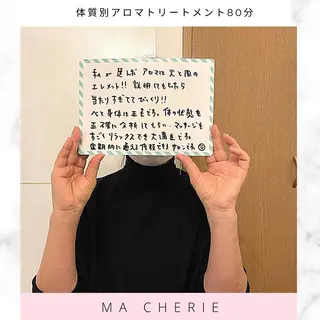 体質別アロマトリートメント80分
私が選んだアロマは火と風の
エレメント!! 説明してもらったら
当たりすぎててびっくり!!
心と身体は正直ですね。体の状態を
正確に分析してもらい、マッサージも
すごくリラックスできて大満足です。
定期的に通える価格です サロンです。
MA CHERIE